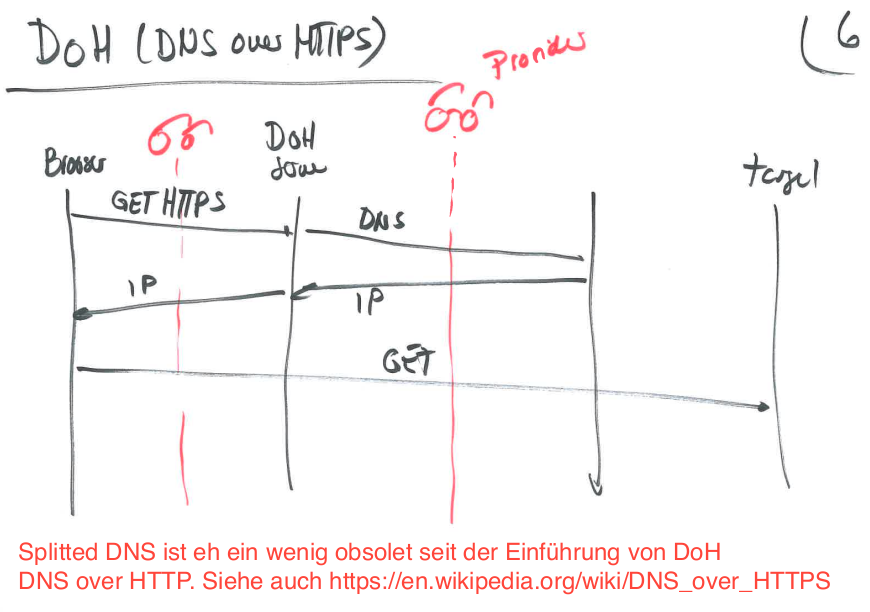 DoH (DNS over HTTPS)
6
Provider
Browser
DoH
target
GET HTTPS
DNS
IP
IP
GET
Splitted DNS ist eh ein wenig obsolet seit der Einführung von DoH
DNS over HTTP. Siehe auch https://en.wikipedia.org/wiki/DNS_over_HTTPS